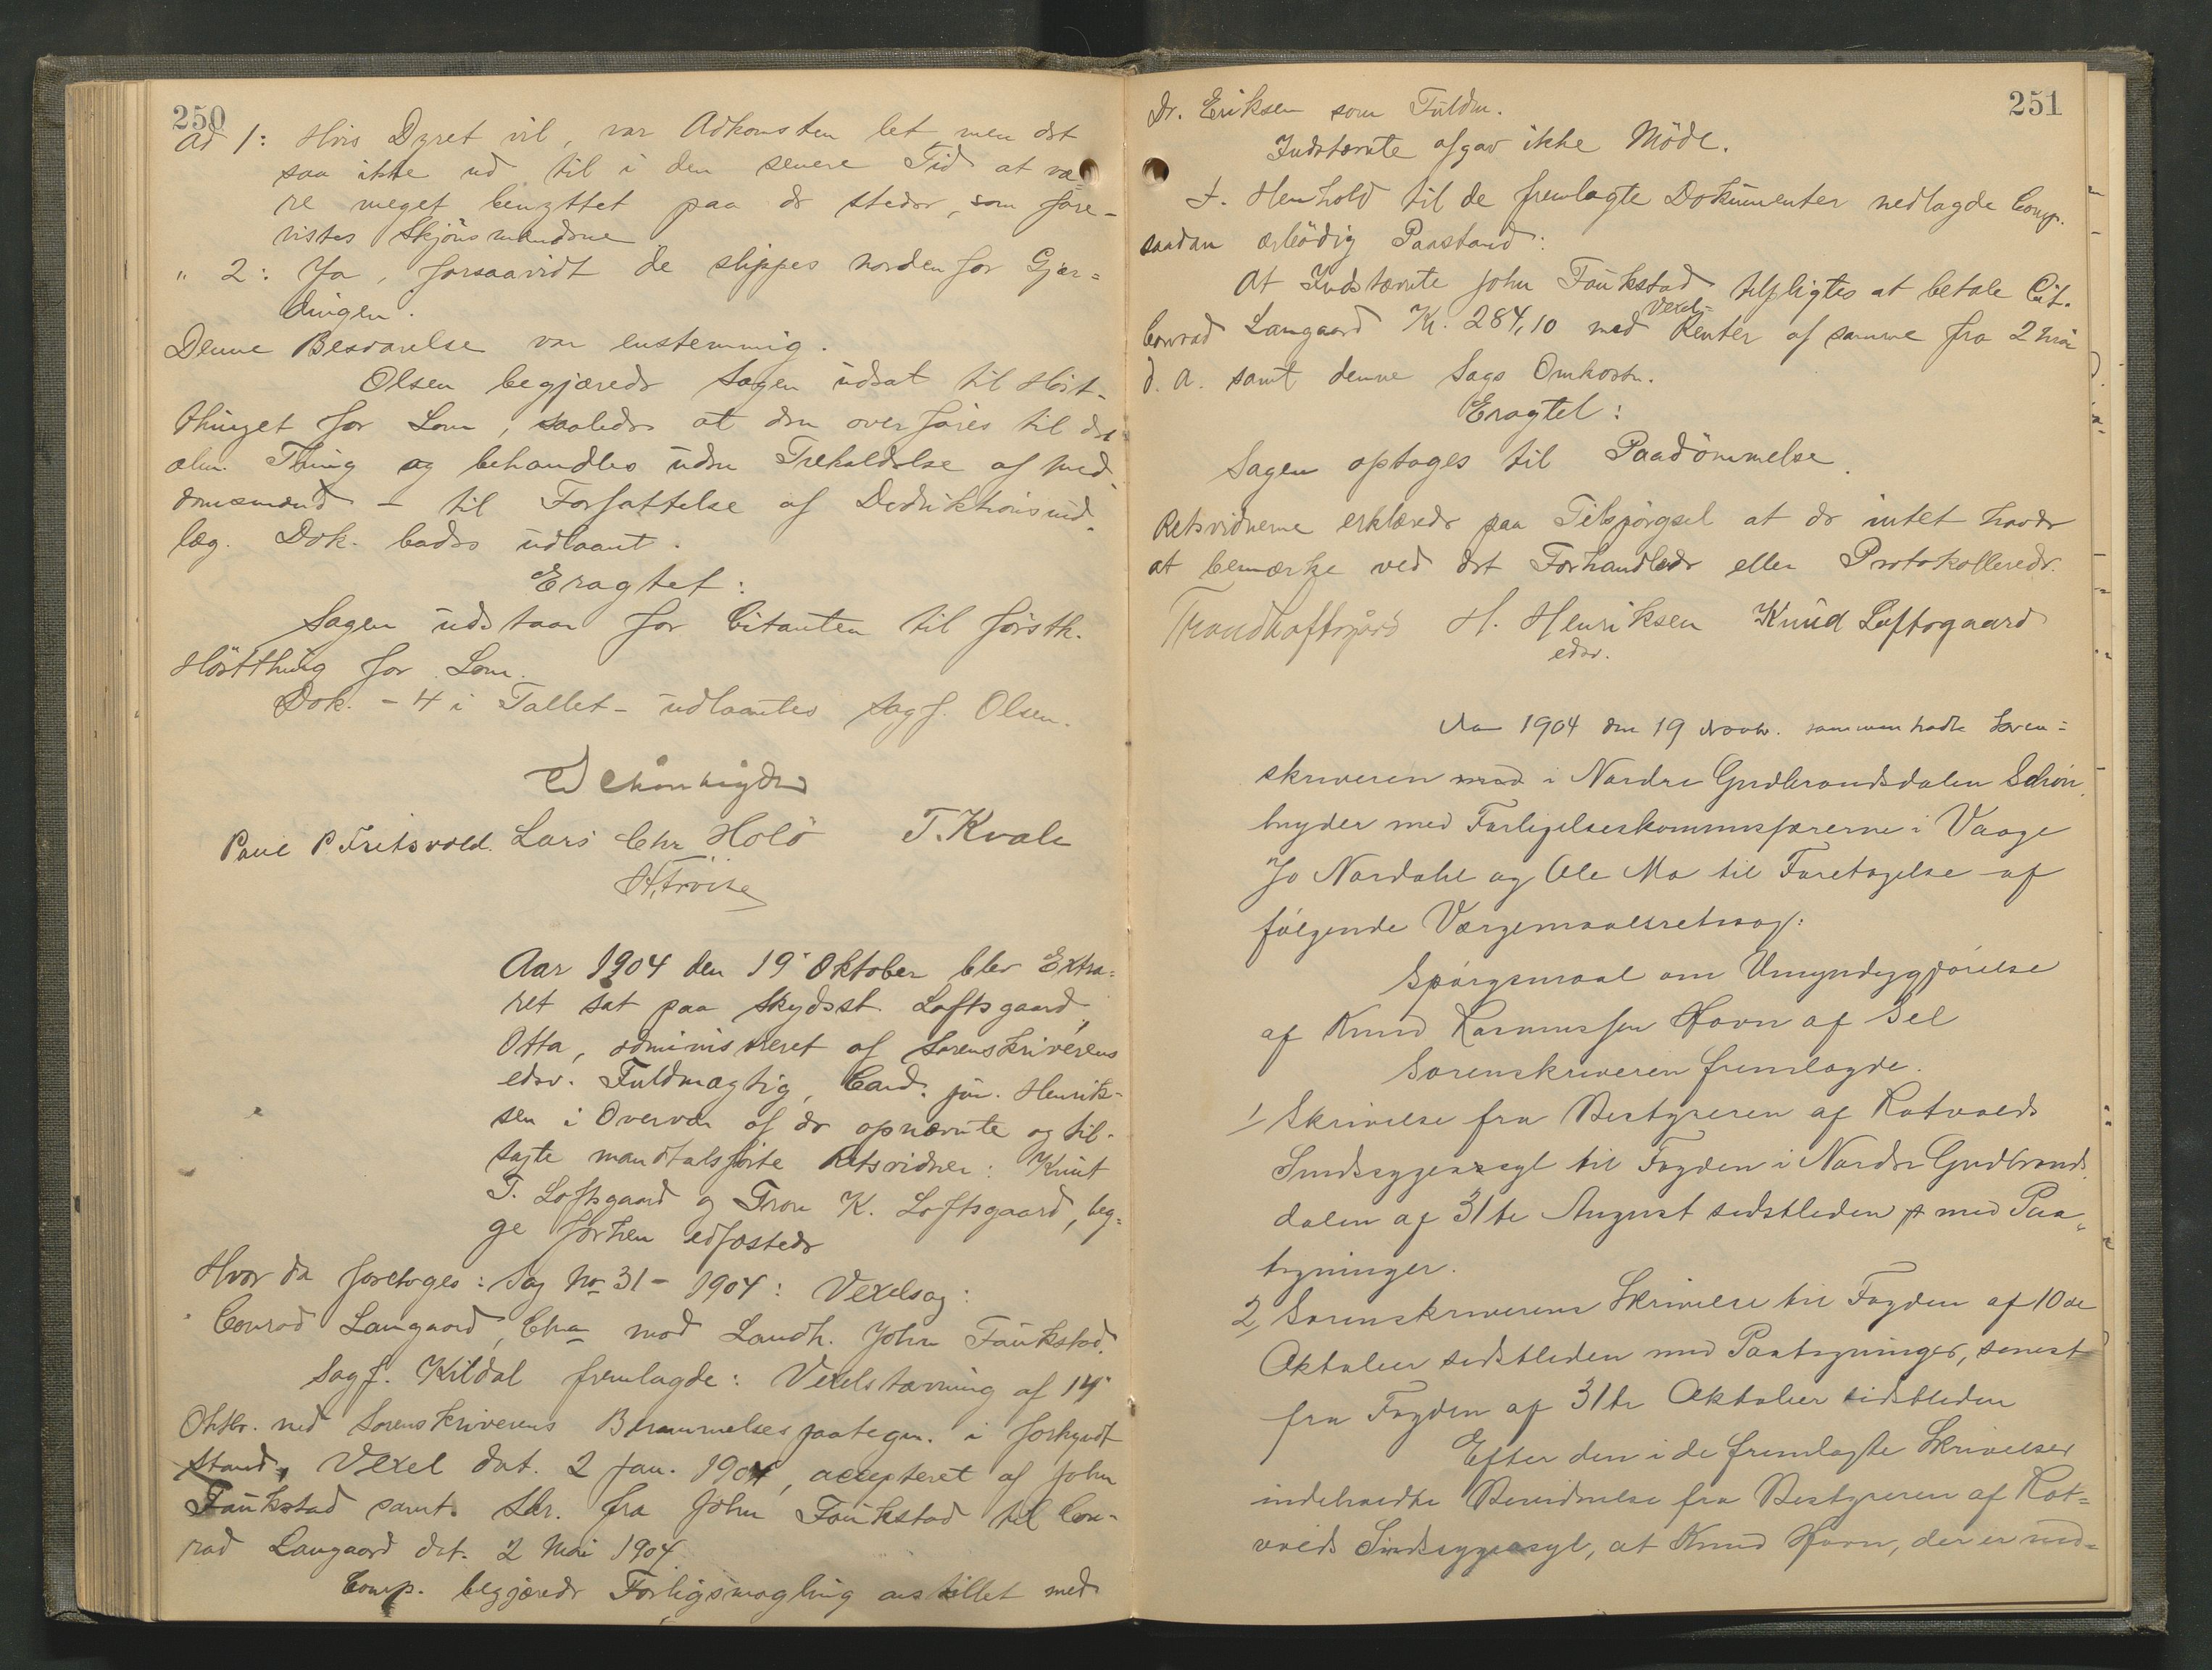 250
Ad 1: Hvis Dyret vil, var Adkomsten let, men det
saa ikke ud til i den senere Tid at væ-
re meget benyttet paa de steder, som fore-
vistes Skjönsmændene
" 2: Ja, forsaavidt de slippes nordenfor Gjær-
dingen.
Denne Besvarelse var enstemmig.
Olsen begjærede Sagen udsat til Höst-
thinget for Lom, saaledes at den overföres til det
alm. Thing og behandles uden Tilkaldelse af Med-
domsmænd - til Forfattelse af Deduktionsind-
læg. Dok. bades udlaant.
Eragtet:
Sagen udstaar for Citanten til förstk.
Höstthing for Lom.
Dok. - 4 i Tallet - udlaantes Sagf. Olsen.
Schönbyder
Paul P. Fritsvold. Lars Chr Holö T. Kvale
Aar 1904 den 19' Oktober blev Extra-
ret sat paa Skydsst. Loftsgaard,
Otta, administreret af Sorenskriverens
edsv. Fuldmægtig, Cand. jur. Henrik-
sen i Overvær af de opnævnte og til-
sagte mandtalsförte Retsvidner: Knut
T. Loftsgaard og Tron K. Loftsgaard, beg-
ge forhen edfæstede
Hvor da foretoges: Sag No 31 - 1904: Vexelsag:
Conrad Langaard, Chra mod Landh. John Faukstad.
Sagf. Kildal fremlagde: Vexelstævning af 14'
Oktbr. med Sorenskriverens Berammelsespaategn. i forkyndt
Stand, Vexel dat. 2 Jan. 1904, accepteret af John
Faukstad samt Skr. fra John Faukstad til Con-
rad Langaard dat. 2 Mai 1904.
Comp. begjærede Forligsmægling anstillet med
251
Dr. Eriksen som Fuldm.
Indstævnte afgav ikke Möde.
I Henhold til de fremlagte Dokumenter nedlagde Comp.
saadan ærbödig Paastand:
At Indstævnte John Faukstad tilpligtes at betale Cit.
Conrad Langaard Kr. 284,10 med Vexel- Renter af samme fra 2 Mai
d. A. samt denne Sags Omkostn.
Eragtet:
Sagen optages til Paadömmelse.
Retsvidnerne erklærede paa Tilspörgsel at de intet havde
at bemærke ved det Forhandlede eller Protokollerede.
Trond Loftsgård H. Henriksen Knud Loftsgaard
edsv.
Aar 1904 den 19 Novbr. sammentraadte Soren-
skriveren med i Nordre Gudbrandsdalen Schön-
byder med Forligelseskommissærerne i Vaage
Jo Nordahl og Ole Mo til Foretagelse af
følgende Værgemaalsretssag:
Spørgsmaal om Umyndiggjørelse
af Knud Rasmussen Hovn af Sel
Sorenskriveren fremlagde.
1/ Skrivelse fra Bestyreren af Rotvolds
Sindssygeasyl til Fogden i Nordre Gudbrands-
dalen af 31te August sidstleden med Paa-
tegninger.
2, Sorenskriverens Skrivelse til Fogden af 10de
Oktober sidstleden med Paategninger, senest
fra Fogden af 31te Oktober sidstleden
Efter den i de fremlagte Skrivelser
indeholdte Bevidnelse fra Bestyreren af Rot-
volds Sindssygeasyl, at Knud Hovn, der er ind-